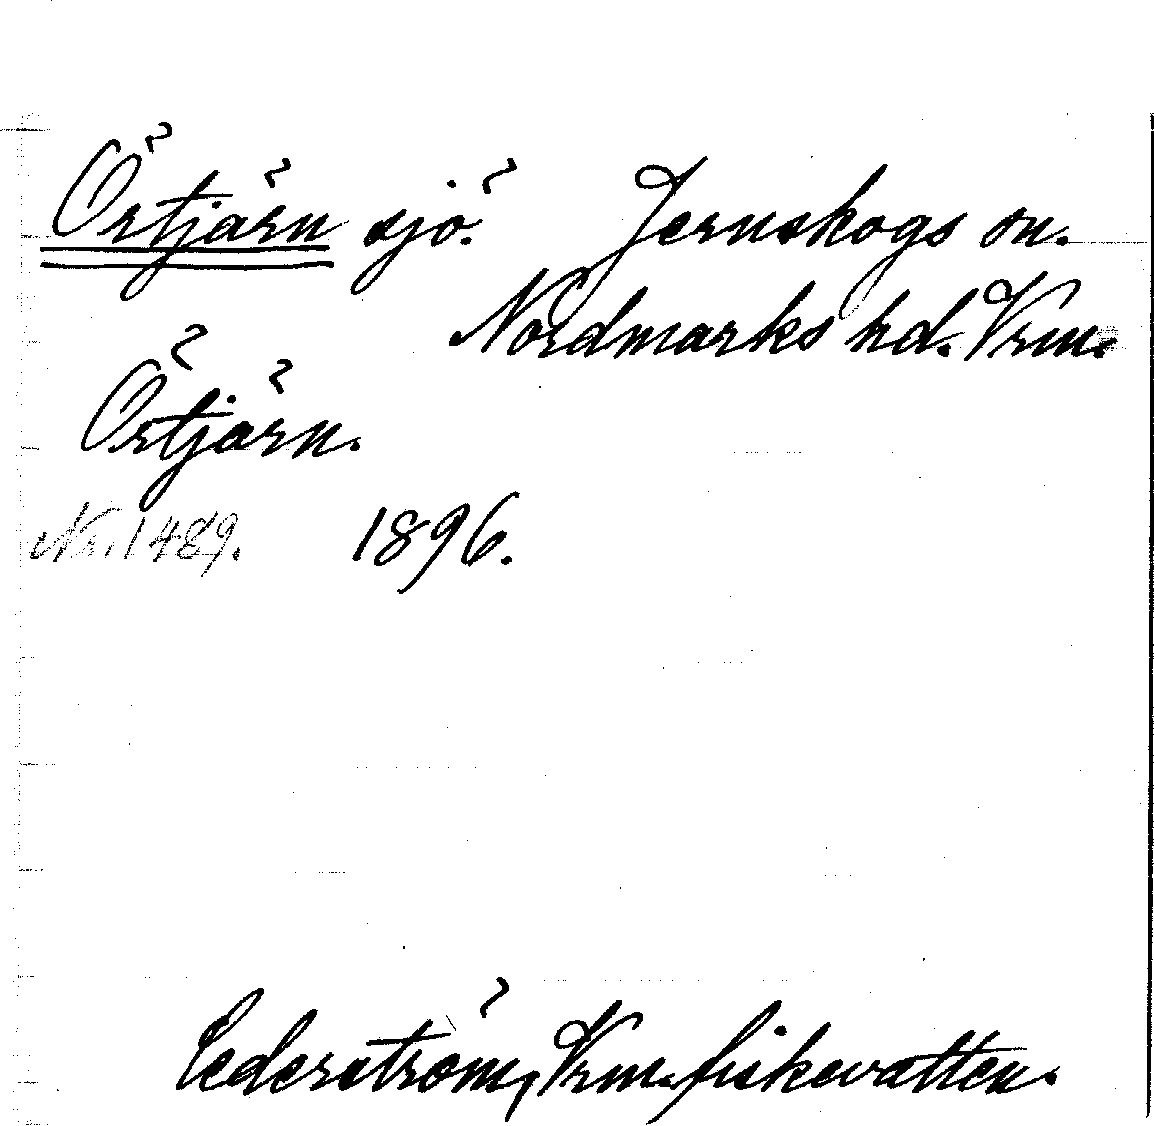 Örtjärn sjö. Jernskogs sn.
Nordmarks hd. Vrm.
Örtjärn.
Nr. 1489. 1896.
Cederström, Vrm. fiskevatten.